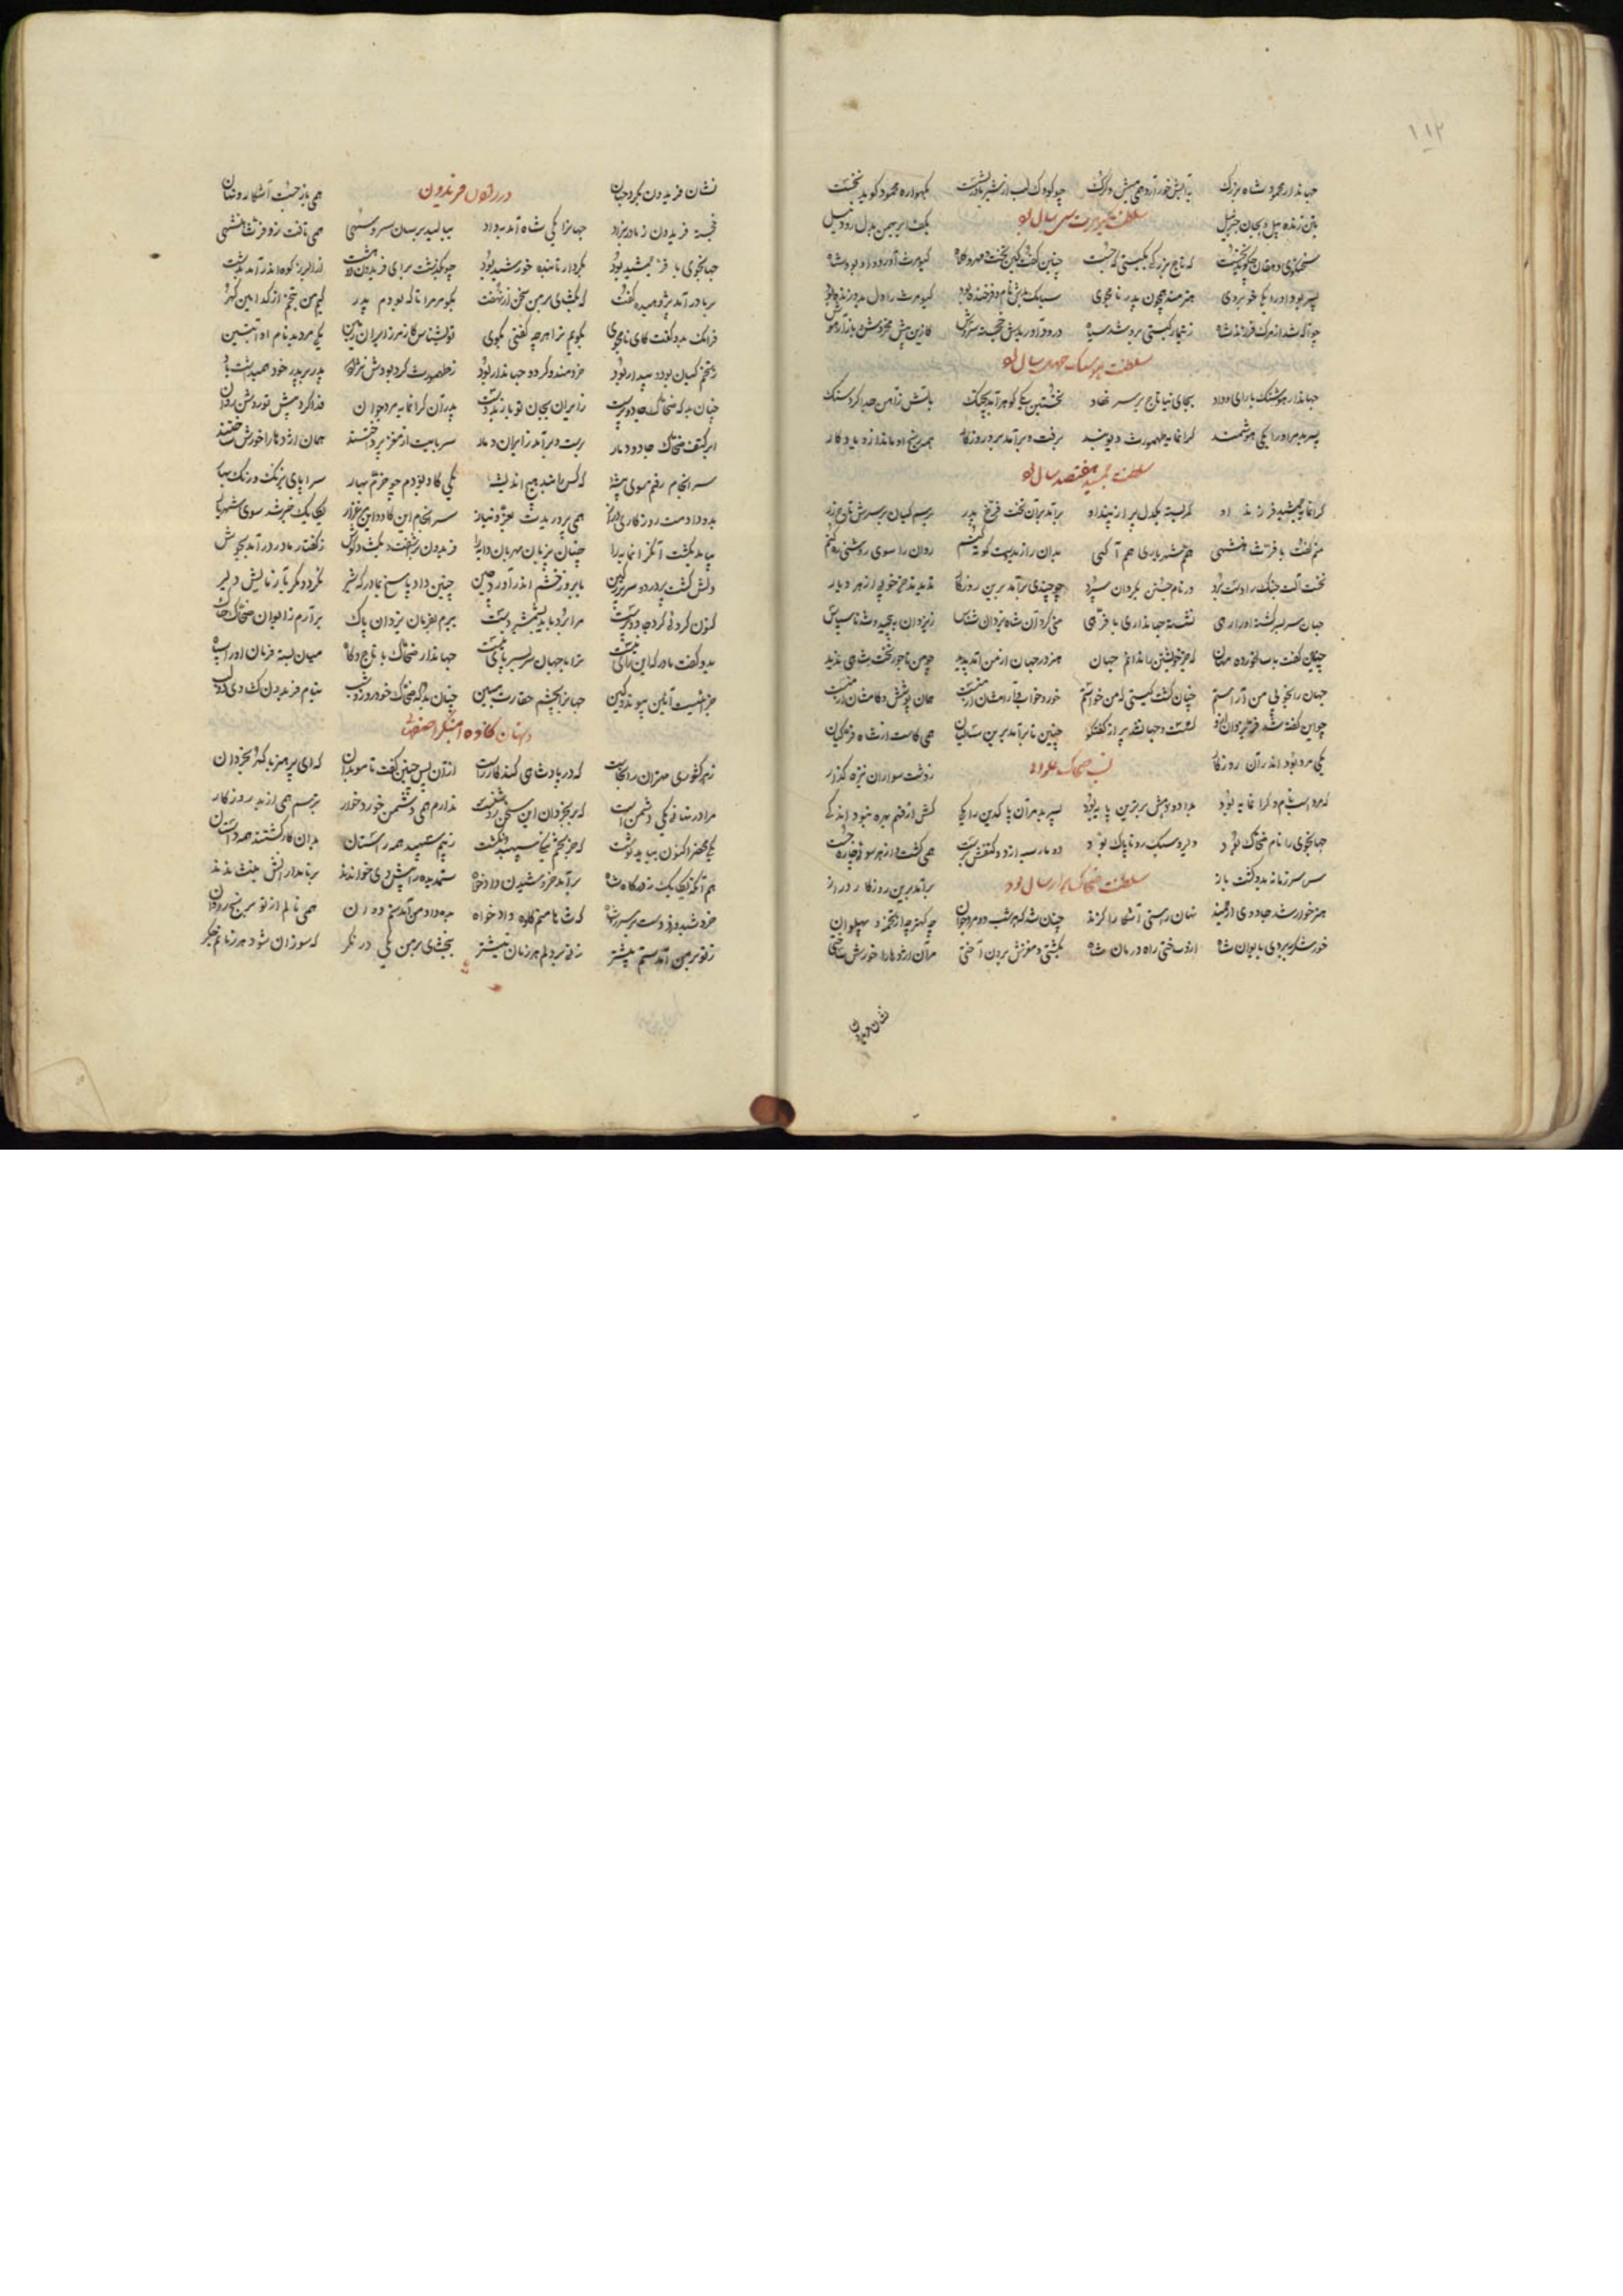 ۱۱۲
جهاندار محمود شاه بزرگ به آبشخور آرد همی میش و گرگ چو کودک لب از شیر مادر بشست بگهواره محمود گوید نخست
بتن زنده پیل و بجان جبرئیل سلطنت کیومرث سی سال بود بکف ابر بهمن بدل رود نیل
سخنگوی دهقان چه گوید نخست که تاج بزرگی بگیتی که جست چنین گفت کین تخت و کلاه کیومرث آورد و او بود شاه
پسر بود او را یکی خوبروی هنرمند همچون پدر نامجوی سیامک بدش نام و فرخنده بود کیومرث را دل بدو زنده بود
چو آگه شد از مرگ فرزند شاه ز تیمار گیتی برو شد سیاه درود آوریدش خجسته سروش کزین بیش مخروش و باز آر هوش
سلطنت هوشنگ چهل سال بود
جهاندار هوشنگ با رای و داد بجای نیا تاج بر سر نهاد نخستین یکی گوهر آمد بچنگ بآتش ز آهن جدا کرد سنگ
پسر بد مر او را یکی هوشمند گرانمایه طهمورث دیوبند برفت و برآمد برو روزگار همه رنج او ماند ازو یادگار
سلطنت جمشید هفتصد سال بود
گرانمایه جمشید فرزند او کمر بسته یکدل پر از پند او برآمد بران تخت فرخ پدر برسم کیان بر سرش تاج زر
منم گفت با فره شاهنشهی هم شهریاری هم آگهی بدان را ز بد دست کوته کنم روان را سوی روشنی ره کنم
نخست آلت جنگ را دست برد در نام جستن بگردان سپرد چو چندی برآمد برین روزگار ندیدند جز خوبی از هر دیار
جهان سربسر گشته او را رهی نشسته جهانداری با فرهی منی کرد آن شاه یزدان شناس ز یزدان بپیچید و شد ناسپاس
چنین گفت با سالخورده مهان که جز خویشتن را ندانم جهان هنر در جهان از من آمد پدید چو من تاجور تخت شاهی ندید
جهان را بخوبی من آراستم چنان گشت گیتی که من خواستم خور و خواب و آرامتان از منست همان پوشش و کامتان از منست
چو این گفته شد فر یزدان ازو گسست و جهان شد پر از گفتگو چنین تا برآمد برین سالیان همی کاست از شاه فر کیان
یکی مرد بود اندر آن روزگار نسب ضحاک علوانی ز دشت سواران نیزه گذار
که مرداس نام گرانمایه بود بداد و دهش برترین پایه بود پسر بد مر آن پاکدین را یکی کش از فهم بهره نبود اندکی
جهانجوی را نام ضحاک بود دلیر و سبک رو ناپاک بود دو مار سیه از دو کتفش برست همی گشت و از هر سوئی چاره جست
سلطنت ضحاک هزار سال بود برآمد برین روزگار دراز
هنر خوار شد جادوی ارجمند نهان راستی آشکارا گزند چنان شد که هر شب دو مرد جوان چه کهتر چه از تخمه پهلوان
خورشگر ببردی بایوان شاه ازو ساختی راه درمان شاه بکشتی و مغزش برون آختی مر آن اژدها را خورش ساختی
نشان فریدون
نشان فریدون بگرد جهان در زادن فریدون همی باز جست آشکار و نهان
خجسته فریدون ز مادر بزاد جهان را یکی شاه آمد بداد ببالید بر سان سرو سهی همی تافت زو فر شاهنشهی
جهانجوی با فر جمشید بود بکردار تابنده خورشید بود چو بگذشت بر فریدون دو هشت از البرز کوه اندر آمد بدشت
بر مادر آمد پژوهید و گفت که بگشای بر من سخن از نهفت بگو مر مرا تا که بودم پدر کیم من بتخم از کدامین گهر
فرانک بدو گفت کای نامجوی بگویم ترا هرچه گفتی بگوی تو بشناس کز مرز ایران زمین یکی مرد بد نام او آبتین
ز تخم کیان بود و بیدار بود خردمند و گرد و جهاندار بود ز طهمورث گرد بودش نژاد پدر بر پدر خود همیداشت یاد
چنان بد که ضحاک جادو پرست ز ایران بجان تو یازید دست پدرت آن گرانمایه مرد جوان فدا کرد پیش تو روشن روان
ابر کتف ضحاک جادو دو مار برست و برآمد ز ایران دمار سر بابت از مغز پرداختند همان اژدها را خورش ساختند
سرانجام رفتم سوی بیشه که کس را نبد هیچ اندیشه یکی گاو دیدم چو خرم بهار سراپای نیرنگ و رنگ و بهار
بدو دادمت روزگاری دراز همی پرورید بعز و نیاز سرانجام این گاو و این مرغزار یکایک خبر شد سوی شهریار
بیامد بکشت آن گرانمایه را چنان بی زبان مهربان دایه را فریدون برآشفت و بگشاد گوش ز گفتار مادر درآمد بجوش
دلش گشت پر درد و سر پر ز کین بابرو ز خشم اندر آورد چین چنین داد پاسخ بمادر که شیر نگردد مگر بآزمایش دلیر
کنون کردنی کرد جادو پرست مرا برد باید بشمشیر دست بپویم بفرمان یزدان پاک برآرم ز ایوان ضحاک خاک
بدو گفت مادر که این رای نیست ترا با جهان سربسر پای نیست جهاندار ضحاک با تاج و گاه میان بسته فرمان او را سپاه
جز اینست آئین پیوند و کین جهان را بچشم حقارت مبین چنان بد که ضحاک خود روز و شب بنام فریدون گشادی دو لب
داستان کاوه آهنگر اصفهانی
ز هر کشوری مهتران را بخواست که در پادشاهی کند کار راست از آن پس چنین گفت با موبدان که ای پرهنر با گهر بخردان
مرا در نهانی یکی دشمن است که بر بخردان این سخن روشنست ندارم همی دشمن خورد خوار بترسم همی از بد روزگار
یکی محضر اکنون بباید نوشت که جز تخم نیکی سپهبد نکشت ز بیم سپهبد همه راستان بدان کار گشتند همداستان
هم آنگه یکایک ز درگاه شاه برآمد خروشیدن دادخواه ستمدیده را پیش وی خواندند بر نامدارانش بنشاندند
خروشید و زد دست بر سر ز شاه که شاها منم کاوه دادخواه بده داد من آمدستم دوان همی نالم از تو برنج روان
ز تو بر من آمد ستم بیشتر زنی بر دلم هر زمان نیشتر ببخشای بر من یکی در نگر که سوزان شود هر زمانم جگر